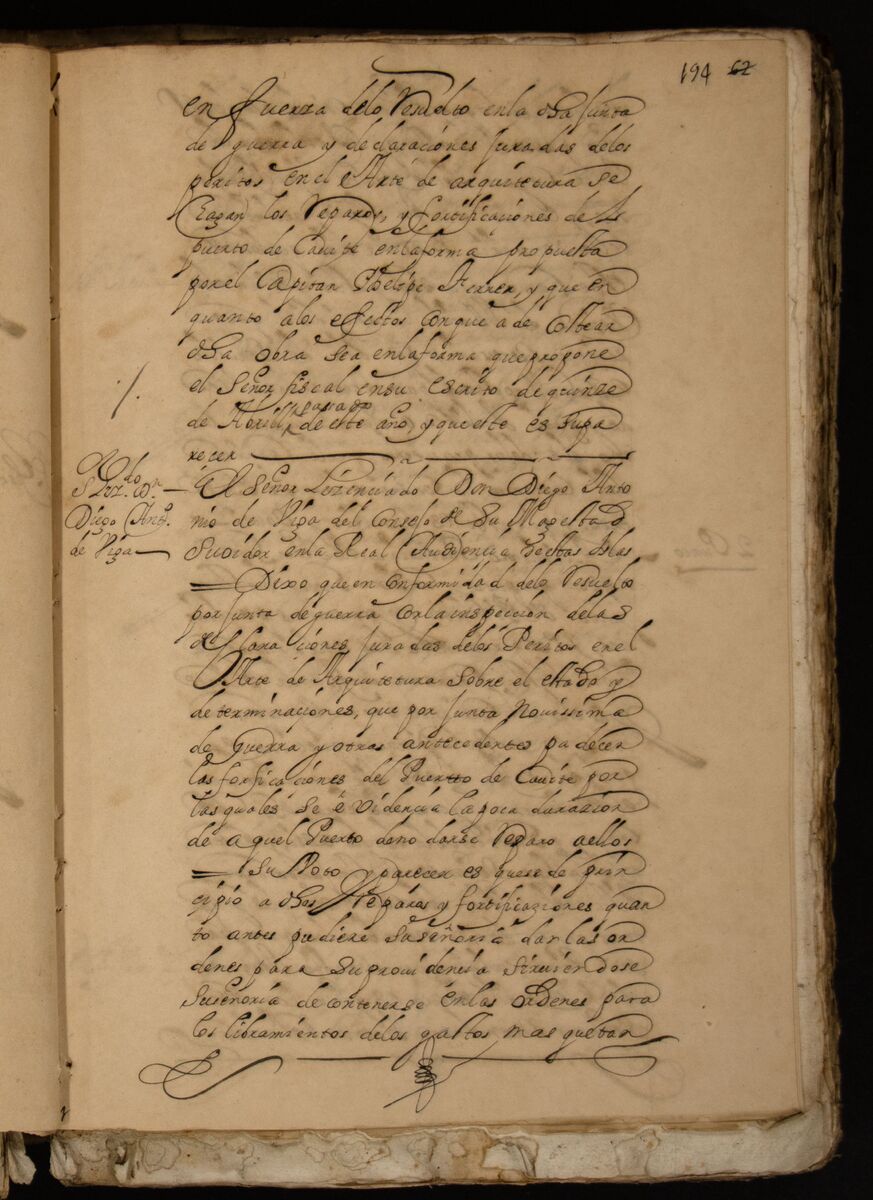 194 62
en fuerza delo Resuelto enla dha Junta
de guerra y declaraciones juradas delos
peritos en el Arte de arquitetura se
hagan los Reparos, y fortificaciones de
puerto de Cavite enlaforma propuesta
porel Capitan Phelipe Ferrer, y que en
quanto alos efectos conque a de Costear
dha obra sea enlaforma que propone
el Señor fiscal ensu escrito de quinze
de Abrill pasado de este año, y queeste es supa
recer
S.r Lizdo. Dn.
Diego Anto.
de Viga
El Señor Lizenciado Don Diego Anto
nio de Viga del Consejo de Su Magestad
Suoidor enla Real Audiencia destas Islas
Dixo que en Conformidad delo Resuelto
por Junta deguerra Conlainspeccion delas
declaraciones juradas delos Peritos enel
Arte de Arquitetura sobre el estado y
determinaciones, que por Junta Novissima
de Guerra y otros antecedentes padecen
las forficaciones del Puertto de Cavite por
las quales se evidencia lapoca durazion
de aquel Puerto deno darse Reparo aellos
Su Voto y parecer es quese de prin
cipio a dhos Reparos y fortificaziones quan
to antes pudiere suseñoria dar las or
denes para su providencia sirviendose
Suseñoria de contenerse enlas ordenes para
los libramientos delos gastos mas quetan